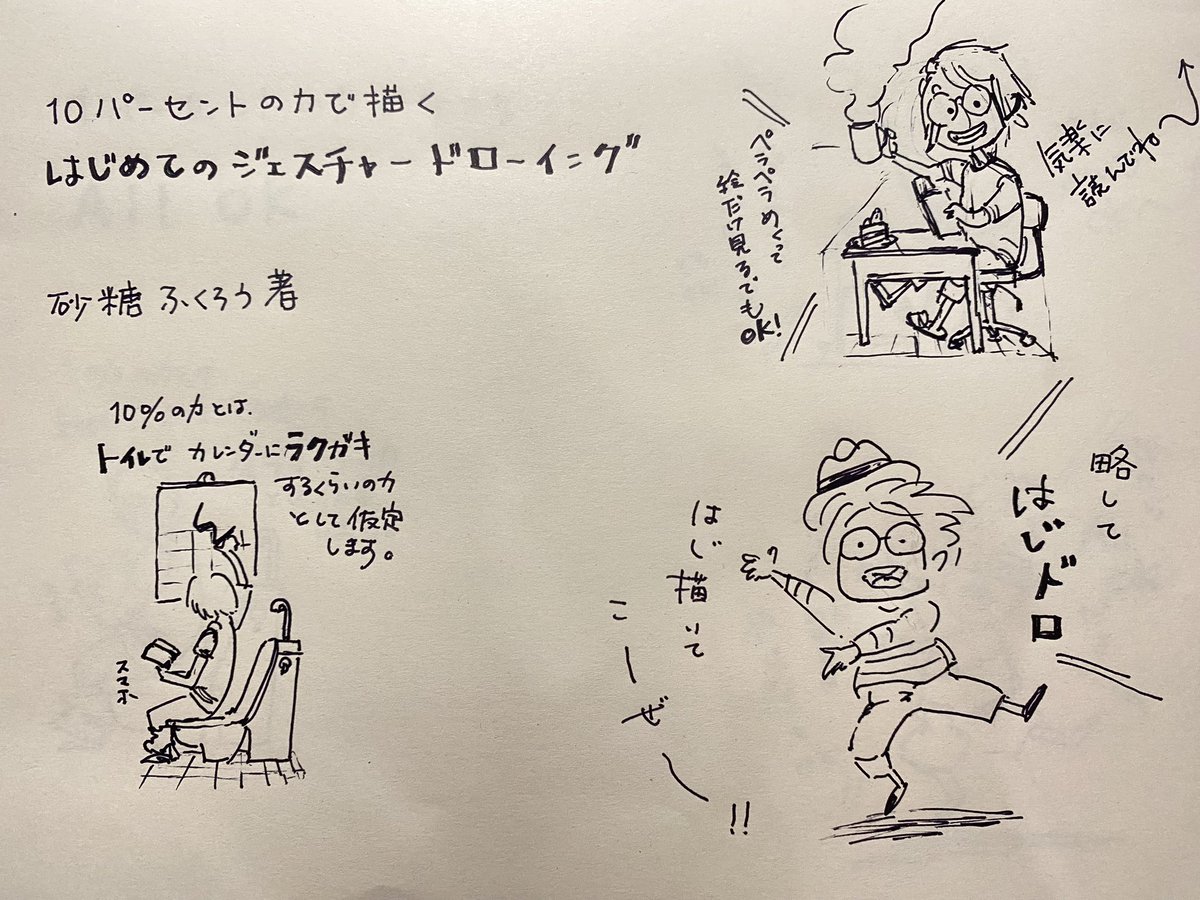 10パーセントの力で描く
はじめてのジェスチャードローイング
砂糖ふくろう著
10%の力とは、
トイレでカレンダーにラクガキ
するくらいの力
として仮定
します。
スマホ
ペラペラめくって
絵だけ見るでも
OK!
気楽に
読んでね
略して
はじドロ
はじ描いて
こーぜ〜!!